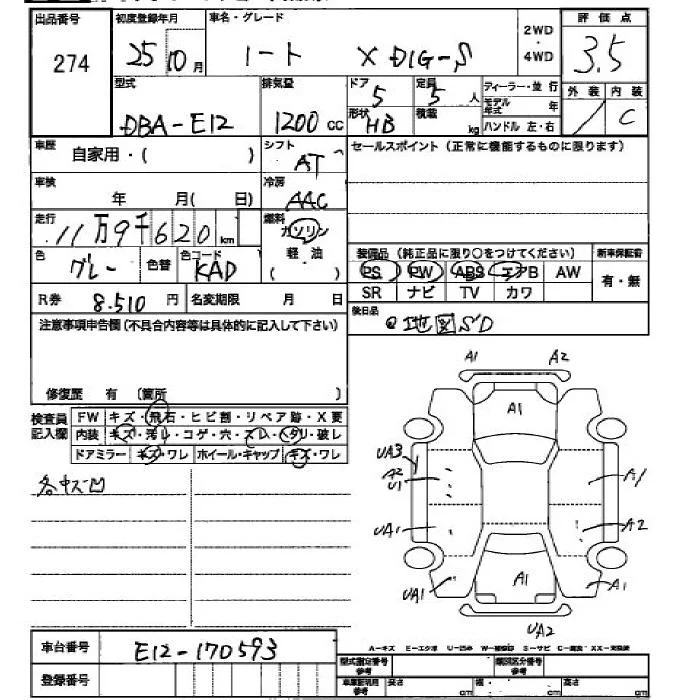 出品番号 初度登録年月 車名・グレード 2WD ・ 4WD 評価点
274 25 10月 ノート X DIG-S 3.5
型式 排気量 ドア 定員 ディーラー・並 行 外装 内装
DBA-E12 1200 cc 5 5 人 モデル年式 年 / C
形状 HB 積載 kg ハンドル 左・右
車歴 自家用・( ) シフト AT セールスポイント (正常に機能するものに限ります)
車検 年 月( 日) 冷房 AAC
走行 11万9千620 km 燃料 ガソリン 軽・油 ( )
装備品 (純正品に限り○をつけてください) 新車保証書
色 グレー 色替 色コード KAD PS PW ABS エアB AW 有・無
R券 8.510 円 名変期限 月 日 SR ナビ TV カワ
注意事項申告欄(不具合内容等は具体的に記入して下さい) 後日品
地図 S'D
修復歴 有 (箇所 )
検査員記入欄 FW キズ・飛石・ヒビ割・リペア跡・X要
内装 キズ・汚レ・コゲ・穴・スレ・ヘタリ・破レ
ドアミラー キズ・ワレ ホイール・キャップ キズ・ワレ
各キズ凹
A1 A2
A1
UA3
A2
U1
A1
UA1 A2
UA1 A1 A1
UA2
A-キズ E-エクボ U-凹み W-補修跡 S-サビ C-腐食 XX-交換済
車台番号 E12-170593
登録番号
型式指定番号 参考 類別区分番号 参考
車庫証明用 参考 長さ cm 幅 cm 高さ cm